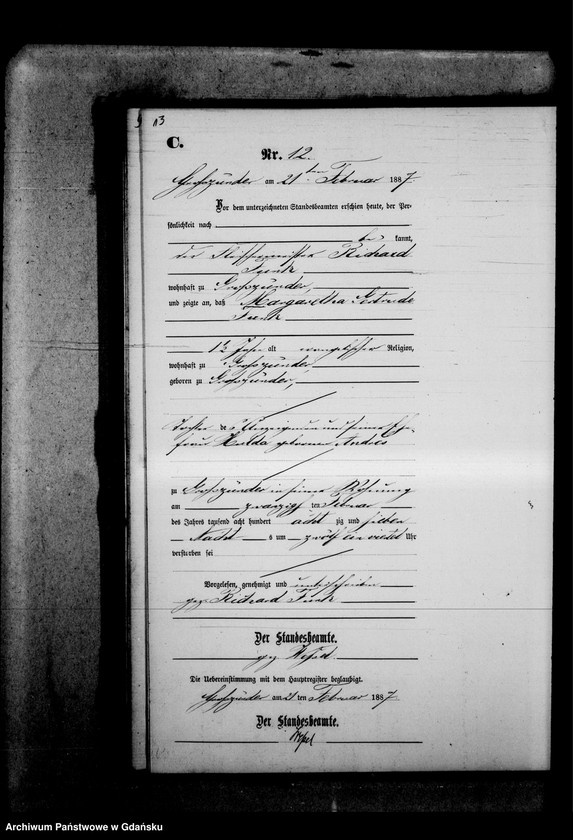 13
C.
Nr. 12.
Großzünder am 21ten Februar 1887
Vor dem unterzeichneten Standesbeamten erschien heute, der Per-
sönlichkeit nach
be kannt,
der Richard
Funk
wohnhaft zu Großzünder,
und zeigte an, daß Margaretha Gertrude
Funk
1½ Jahr alt evangelischer Religion,
wohnhaft zu Großzünder
geboren zu Großzünder,
Tochter des Anzeigenden und seiner Ehe-
frau Hulda geborner Andres
zu Großzünder in seiner Wohnung
am zwanzigs ten Februar
des Jahres tausend acht hundert acht zig und sieben
Nacht s um zwölf ein viertel Uhr
verstorben sei
Vorgelesen, genehmigt und unterschrieben
gez. Richard Funk
Der Standesbeamte.
gez. Wessel
Die Uebereinstimmung mit dem Hauptregister beglaubigt.
Großzünder am 21 ten Februar 1887
Der Standesbeamte.
Wessel
Archiwum Państwowe w Gdańsku